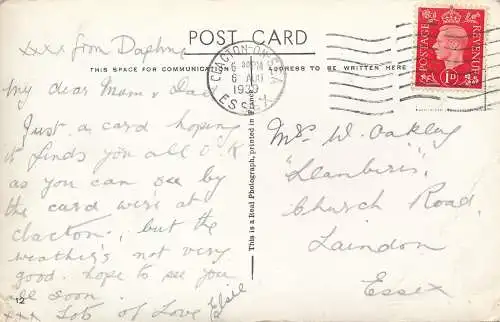 xxx from Daphne
POST CARD
THIS SPACE FOR COMMUNICATION
ADDRESS TO BE WRITTEN HERE
CLACTON-ON-SEA
6 AUG
1939
ESSEX
POSTAGE
REVENUE
1D
My dear Mam & Dad
Just a card hoping
it finds you all O.K
as you can see by
the card we're at
Clacton, but the
weather's not very
good. hope to see you
all soon.
xxx Lots of Love Elsie
12
This is a Real Photograph, printed in France
Mrs W. Oakley
"Llanberis",
Church Road,
Laindon
Essex